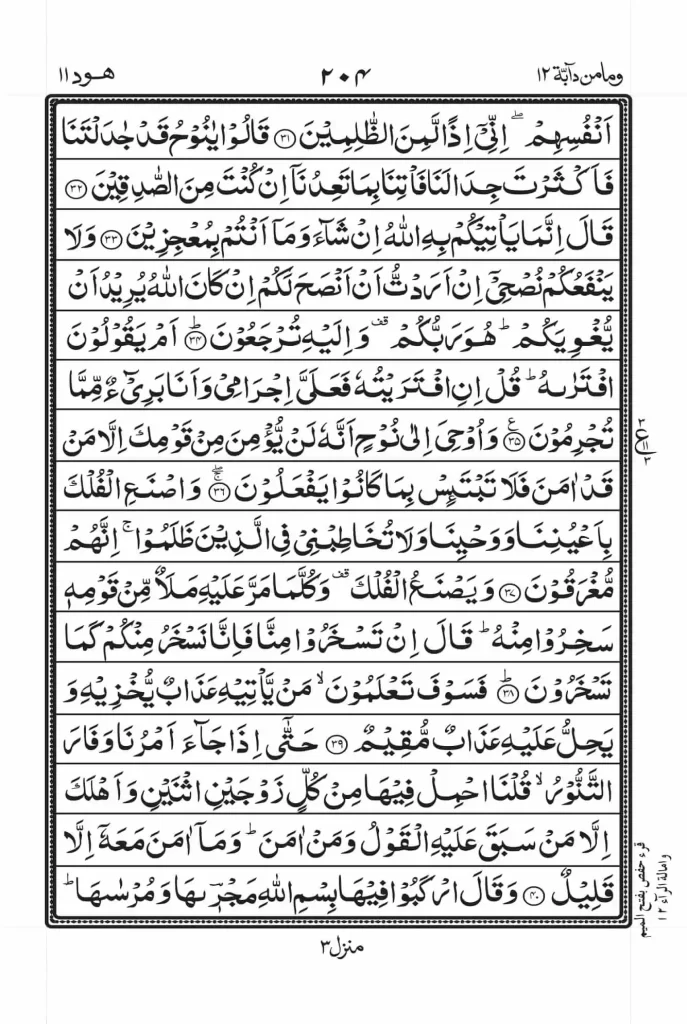 وما من دآبّة ١٢
٢٠٤
هود ١١
اَنْفُسِهِمْ ۖ اِنِّیْۤ اِذًا لَّمِنَ الظّٰلِمِیْنَ ﴿٣١﴾ قَالُوْا یٰنُوْحُ قَدْ جٰدَلْتَنَا
فَاَكْثَرْتَ جِدَالَنَا فَاْتِنَا بِمَا تَعِدُنَاۤ اِنْ كُنْتَ مِنَ الصّٰدِقِیْنَ ﴿٣٢﴾
قَالَ اِنَّمَا یَاْتِیْكُمْ بِهِ اللّٰهُ اِنْ شَآءَ وَمَاۤ اَنْتُمْ بِمُعْجِزِیْنَ ﴿٣٣﴾ وَلَا
یَنْفَعُكُمْ نُصْحِیْۤ اِنْ اَرَدْتُّ اَنْ اَنْصَحَ لَكُمْ اِنْ كَانَ اللّٰهُ یُرِیْدُ اَنْ
یُّغْوِیَكُمْ ؕ هُوَ رَبُّكُمْ ۫ وَاِلَیْهِ تُرْجَعُوْنَ ﴿٣٤﴾ؕ اَمْ یَقُوْلُوْنَ
افْتَرٰىهُ ؕ قُلْ اِنِ افْتَرَیْتُهٗ فَعَلَیَّ اِجْرَامِیْ وَاَنَا بَرِیْٓءٌ مِّمَّا
تُجْرِمُوْنَ ﴿٣٥﴾ع وَاُوْحِیَ اِلٰی نُوْحٍ اَنَّهٗ لَنْ یُّؤْمِنَ مِنْ قَوْمِكَ اِلَّا مَنْ
قَدْ اٰمَنَ فَلَا تَبْتَىِٕسْ بِمَا كَانُوْا یَفْعَلُوْنَ ﴿٣٦﴾ۚۖ وَاصْنَعِ الْفُلْكَ
بِاَعْیُنِنَا وَوَحْیِنَا وَلَا تُخَاطِبْنِیْ فِی الَّذِیْنَ ظَلَمُوْا ۚ اِنَّهُمْ
مُّغْرَقُوْنَ ﴿٣٧﴾ وَیَصْنَعُ الْفُلْكَ ۫ وَكُلَّمَا مَرَّ عَلَیْهِ مَلَاٌ مِّنْ قَوْمِهٖ
سَخِرُوْا مِنْهُ ؕ قَالَ اِنْ تَسْخَرُوْا مِنَّا فَاِنَّا نَسْخَرُ مِنْكُمْ كَمَا
تَسْخَرُوْنَ ﴿٣٨﴾ؕ فَسَوْفَ تَعْلَمُوْنَ ۙ مَنْ یَّاْتِیْهِ عَذَابٌ یُّخْزِیْهِ وَ
یَحِلُّ عَلَیْهِ عَذَابٌ مُّقِیْمٌ ﴿٣٩﴾ حَتّٰۤی اِذَا جَآءَ اَمْرُنَا وَفَارَ
التَّنُّوْرُ ۙ قُلْنَا احْمِلْ فِیْهَا مِنْ كُلٍّ زَوْجَیْنِ اثْنَیْنِ وَاَهْلَكَ
اِلَّا مَنْ سَبَقَ عَلَیْهِ الْقَوْلُ وَمَنْ اٰمَنَ ؕ وَمَاۤ اٰمَنَ مَعَهٗۤ اِلَّا
قَلِیْلٌ ﴿٤٠﴾ وَقَالَ ارْكَبُوْا فِیْهَا بِسْمِ اللّٰهِ مَجْرٖىهَا وَمُرْسٰىهَا ؕ
ع
قرء حفص بفتح الميم
وامالة الرآء ١٢
منزل ٣